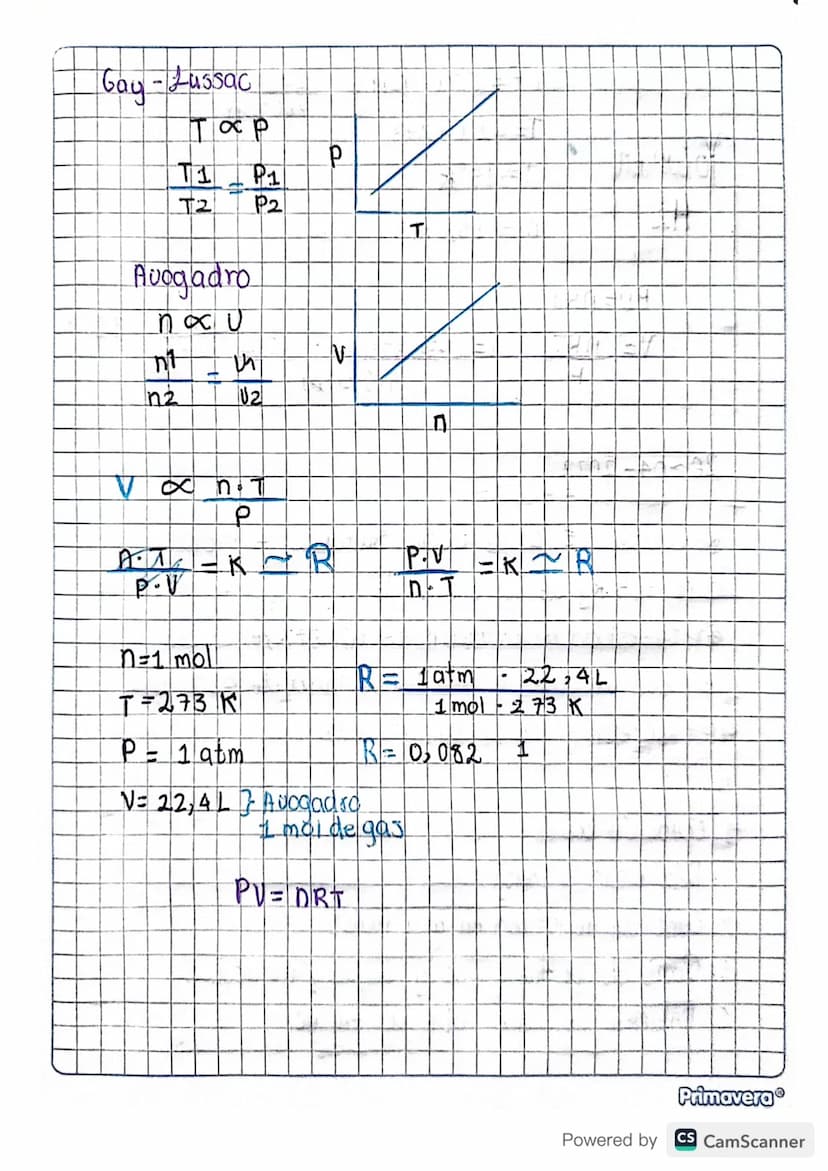 Gay-Lussac
T ∝ P
T1/T2 = P1/P2
P
T
Avogadro
n ∝ V
n1/n2 = V1/V2
V
n
V ∝ n·T/P
n·T/P·V = K ≃ R
P.V/n·T = K ≃ R
n=1 mol
T=273 K
P= 1 atm
V= 22,4 L } Avogadro
1 mol de gas
R= 1atm · 22,4L/1mol · 273 K
R= 0,082 1
PV= nRT
Primavera®
Powered by CS CamScanner